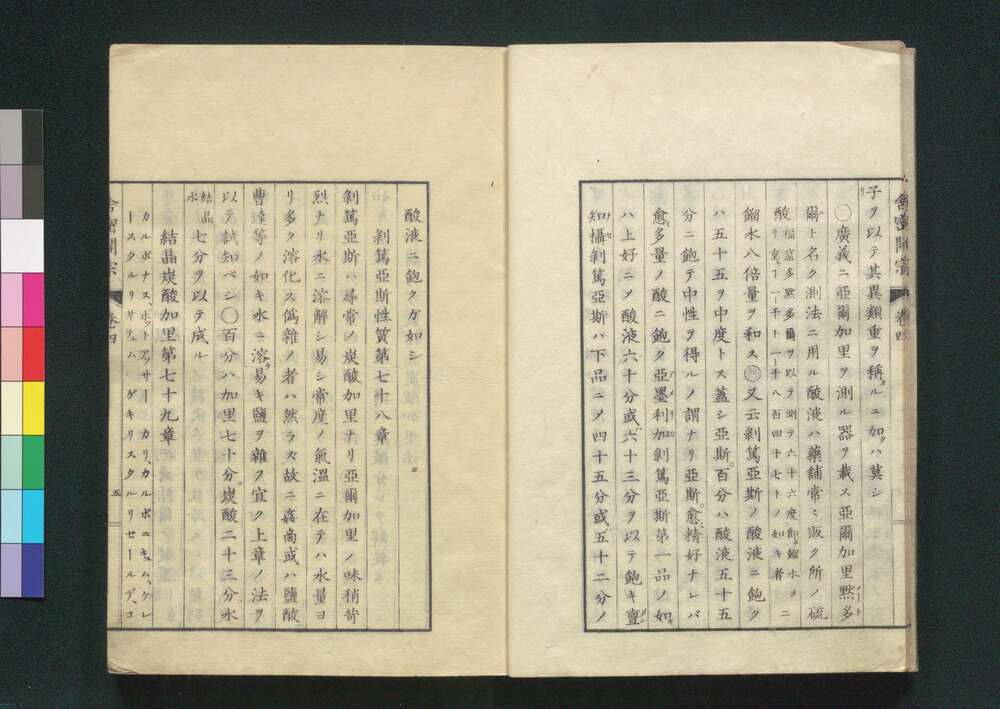 子ヲ以テ其異類重ヲ稱ルニ加ハ莫シ
〇廣義ニ亞爾加里ヲ測ル器ヲ載ス亞爾加里黙多
爾ト名ク測法ニ用ル酸液ハ藥舗常ニ販ク所ノ硫
酸福烏多黙多爾ヲ以テ測テ六十六度即餾水ヨニ
酸リ重一千ト一千八百四十七トノ如キ者
餾水八倍量ヲ和ス 又云剝篤亞斯ノ酸液ニ飽ク
ハ五十五ヲ中度トス蓋シ亞斯百分ハ酸液五十五
分ニ飽テ中性ヲ得ルノ謂ナリ亞斯愈精好ナレバ
愈多量ノ酸ニ飽ク亞墨利加剝篤亞斯第一品ノ如
ハ上好ニメ酸液六十分或六十三分ヲ以テ飽キ亶
知攝剝篤亞斯ハ下品ニメ四十五分或五十二分ノ
舎密開宗 巻四
酸液ニ飽クガ如シ
剝篤亞斯性質第七十八章
剝篤亞斯ハ尋常ノ炭酸加里ナリ亞爾加里ノ味稍苛
烈ナリ水ニ溶解シ易シ常度ノ氣温ニ在テハ水量ヨ
リ多ク溶化ス僞雜ノ者ハ然ラズ故ニ姦商或ハ鹽酸
曹達等ノ如キ水ニ溶易キ鹽ヲ雜ヲ宜ク上章ノ法ヲ
以テ試知ベシ〇百分ハ加里七十分炭酸二十三分氷
結晶水七分ヲ以テ成ル
結晶炭酸加里第七十九章
カルボナス、ポットアッサー カリ、カルボニキュム、ケレ
ースタルリサチュハ ゲキリスタルリセールデ、コ
舎密開宗 巻四 五